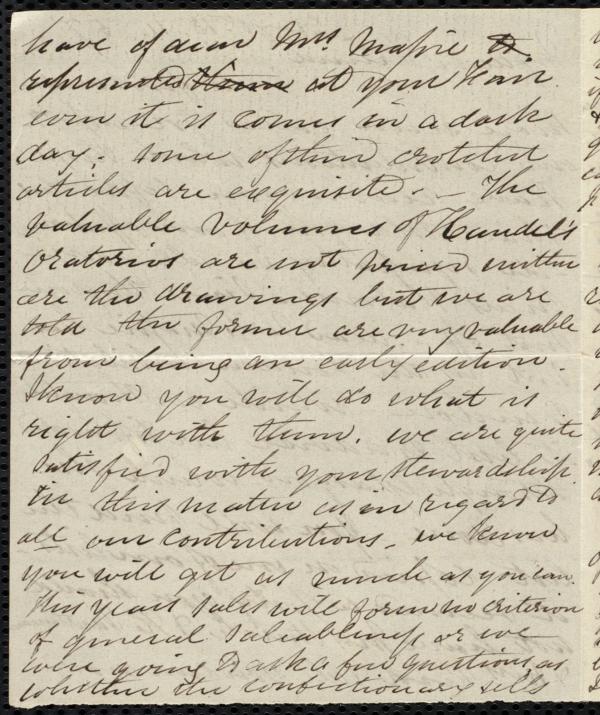 have of dear Mrs Massie to
represented them at your Fair
even it is comes in a dark
day; some of their crotchet
articles are exquisite. - The
valuable volumes of Handel's
Oratorios are not priced neither
are the drawings but we are
told the former are very valuable
from being an early edition.
I know you will do what is
right with them. we are quite
satisfied with your stewardship
in this matter as in regard to
all our contributions - we know
you will get as much as you can.
This years sales will form no criterion
of general saleableness, or we
were going to ask a few questions, as
whether the confectionary sells